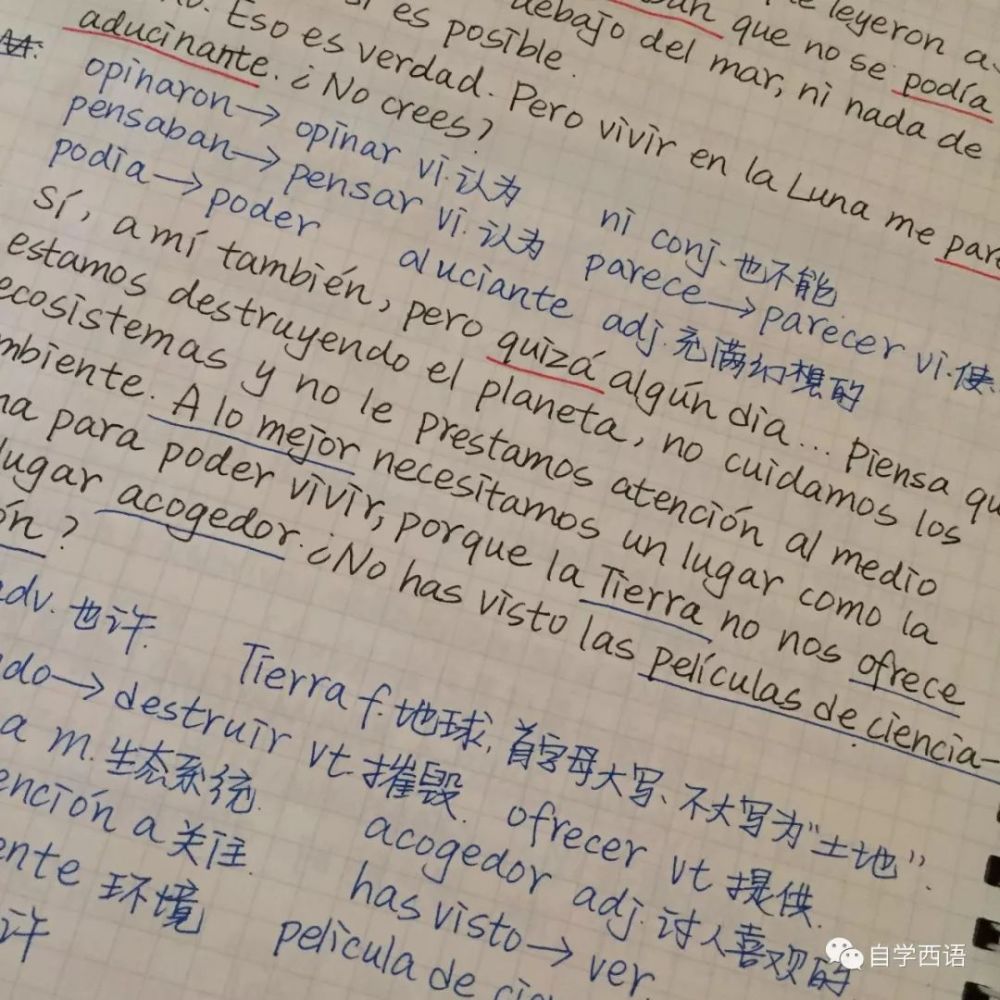 leyeron a
si es posible. debajo del mar, ni nada de
que no se podía
Eso es verdad. Pero vivir en la Luna me pare
aducinante. ¿No crees?
opinaron→opinar vi.认为 ni conj.也不能.
pensaban→pensar vi.认为 parece→parecer vi.使
podía→poder aluciante adj.充满幻想的
sí, a mí también, pero quizá algún día... Piensa qu
estamos destruyendo el planeta, no cuidamos los
ecosistemas y no le prestamos atención al medio
mbiente. A lo mejor necesitamos un lugar como la
na para poder vivir, porque la Tierra no nos ofrece
lugar acogedor. ¿No has visto las películas de ciencia-
ón?
adv.也许. Tierra f.地球,首字母大写、不大写为"土地".
ndo→destruir vt.摧毁. ofrecer vt 提供.
a m.生态系统. acogedor adj.讨人喜欢的
ención a 关注. has visto→ver.
ente 环境 película de cie
许
自学西语